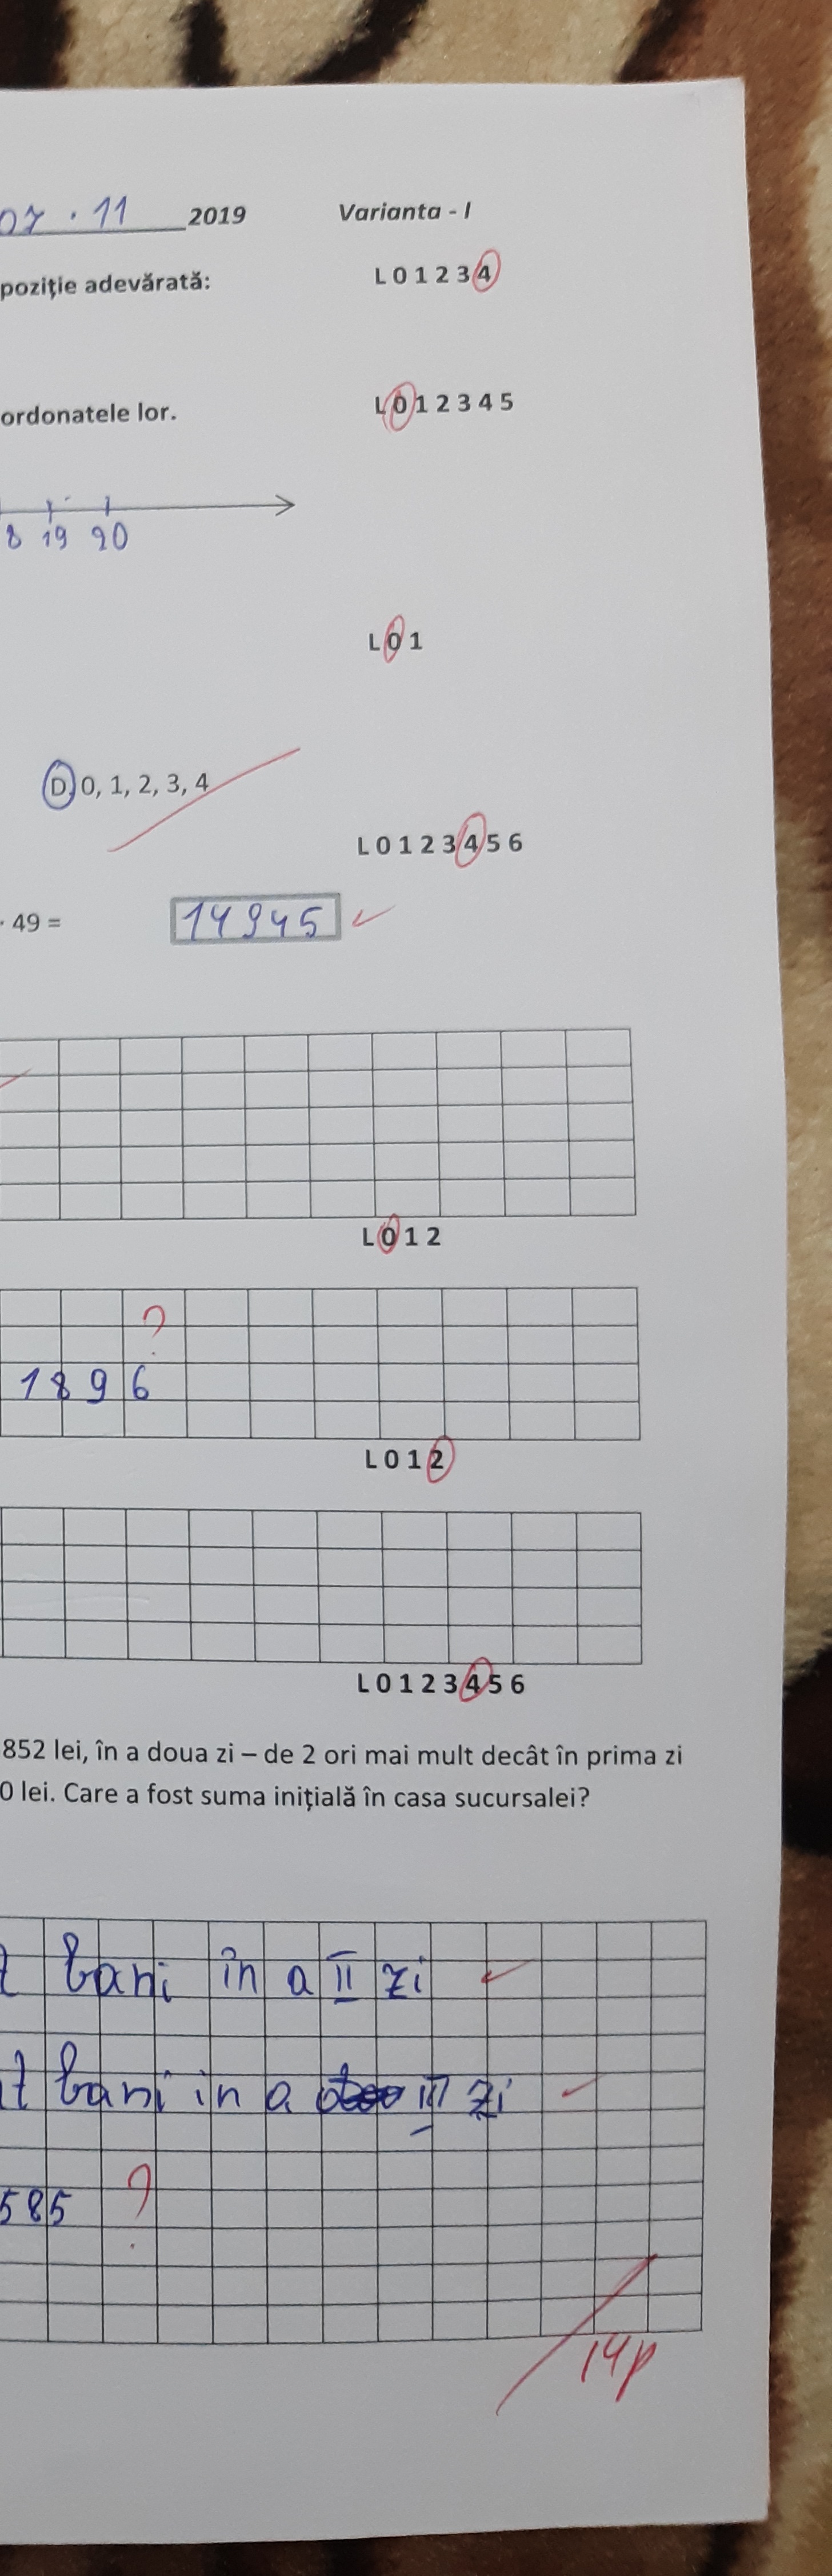 07 . 11 2019 Varianta - I
poziție adevărată: L 0 1 2 3 4
ordonatele lor. L 0 1 2 3 4 5
8 19 20
L 0 1
D. 0, 1, 2, 3, 4
L 0 1 2 3 4 5 6
· 49 = 14945
L 0 1 2
?
1896
L 0 1 2
L 0 1 2 3 4 5 6
852 lei, în a doua zi – de 2 ori mai mult decât în prima zi
0 lei. Care a fost suma inițială în casa sucursalei?
t bani în a II zi
t bani in a III zi
585 ?
14p